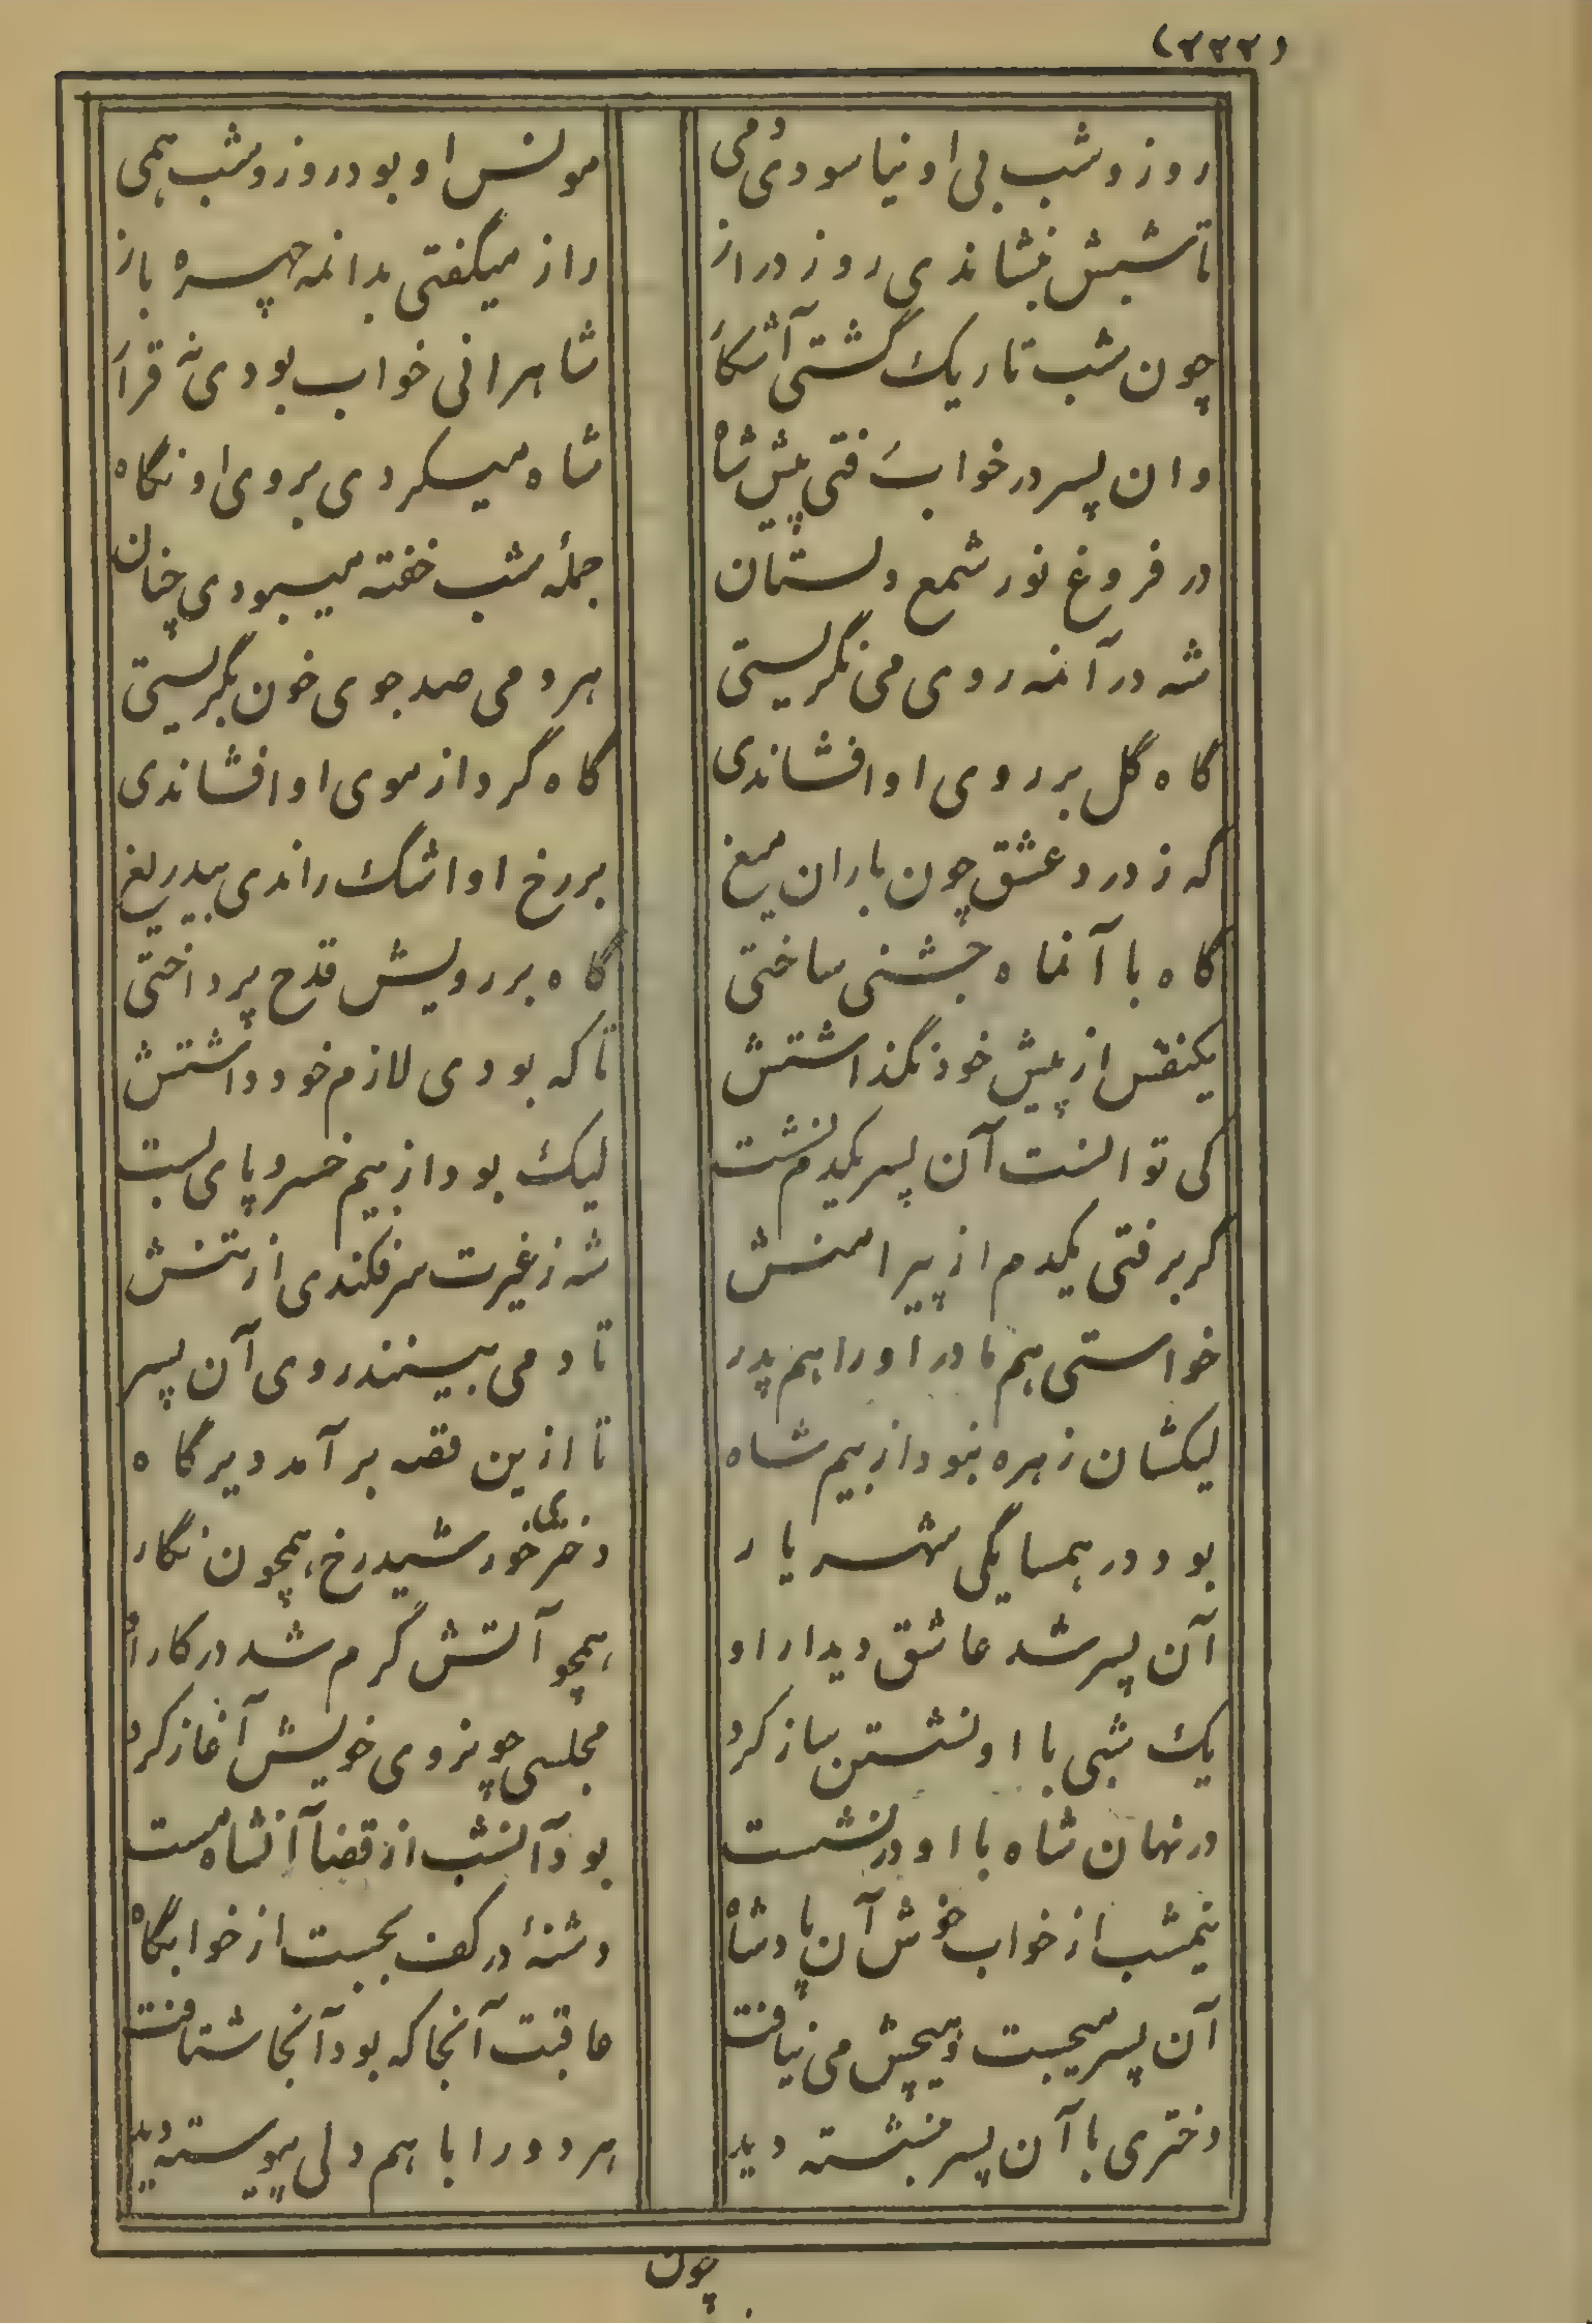 (۲۲۲)
روز و شب بی او نیاسودی دمی مونس او بود روز و شب همی
تا شبش بنشاندی روز دراز راز میگفتی بدانمه چهره باز
چون شب تاریک گشتی آشکار شاهرا نی خواب بودی نه قرار
وان پسر در خواب رفتی پیش شاه شاه میکردی بروی او نگاه
در فروغ نور شمع دلستان جملهٔ شب خفته میبودی چنان
شه در آنمه روی می نگریستی هر دمی صد جوی خون بگریستی
گاه گل بر روی او افشاندی گاه گرد از موی او افشاندی
که ز درد عشق چون باران میغ بر رخ او اشک راندی بیدریغ
گاه با آنماه جشنی ساختی گاه بر رویش قدح پرداختی
یکنفس از پیش خود نگذاشتش تا که بودی لازم خود داشتش
کی توانست آن پسر یکدم نشست لیک بود از بیم خسرو پای بست
گر برفتی یکدم از پیرامنش شه ز غیرت سر فکندی از تنش
خواستی هم مادر او را هم پدر تا دمی بینند روی آن پسر
لیکشان زهره نبود از بیم شاه تا ازین قصه برآمد دیرگاه
بود در همسایگی شهریار دختری خورشید رخ همچون نگار
آن پسر شد عاشق دیدار او همچو آتش گرم شد در کار او
یک شبی با او نشستن ساز کرد مجلسی چو نروی خویش آغاز کرد
در نهان شاه با او در نشست بود آنشب از قضا آنشاه مست
نیمشب از خواب خوش آن پادشاه دشنهٔ در کف بجست از خوابگاه
آن پسر میجست و هیچش می نیافت عاقبت آنجا که بود آنجا شتافت
دختری با آن پسر بنشسته دید هر دو را با هم دلی پیوسته دید
چون